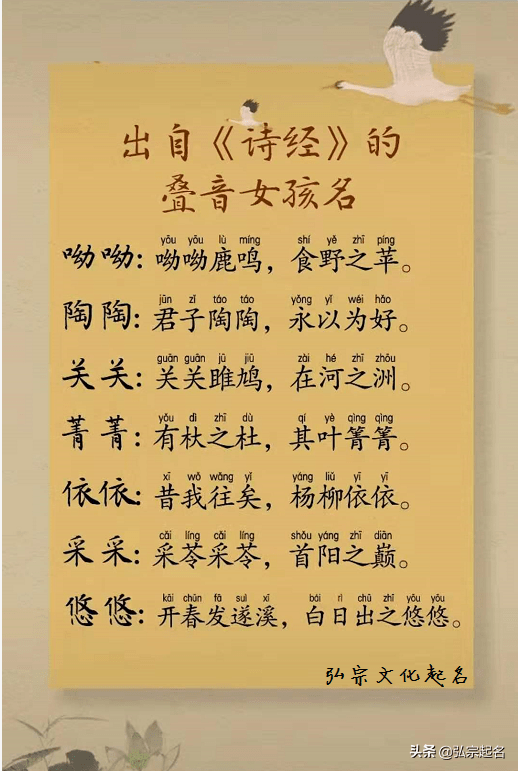 出自《诗经》的
叠音女孩名
yōu yōu lù míng shí yě zhī píng
呦呦：呦呦鹿鸣，食野之苹。
jūn zǐ táo táo yǒng yǐ wéi hǎo
陶陶：君子陶陶，永以为好。
guān guān jū jiū zài hé zhī zhōu
关关：关关雎鸠，在河之洲。
yǒu dì zhī dù qí yè qìng qìng
菁菁：有杕之杜，其叶箐箐。
xī wǒ wǎng yǐ yáng liǔ yī yī
依依：昔我往矣，杨柳依依。
cǎi líng cǎi líng shǒu yáng zhī diān
采采：采苓采苓，首阳之巅。
kāi chūn fā suì xī bái rì chū zhī yōu yōu
悠悠：开春发遂溪，白日出之悠悠。
弘宗文化起名
头条 @弘宗起名